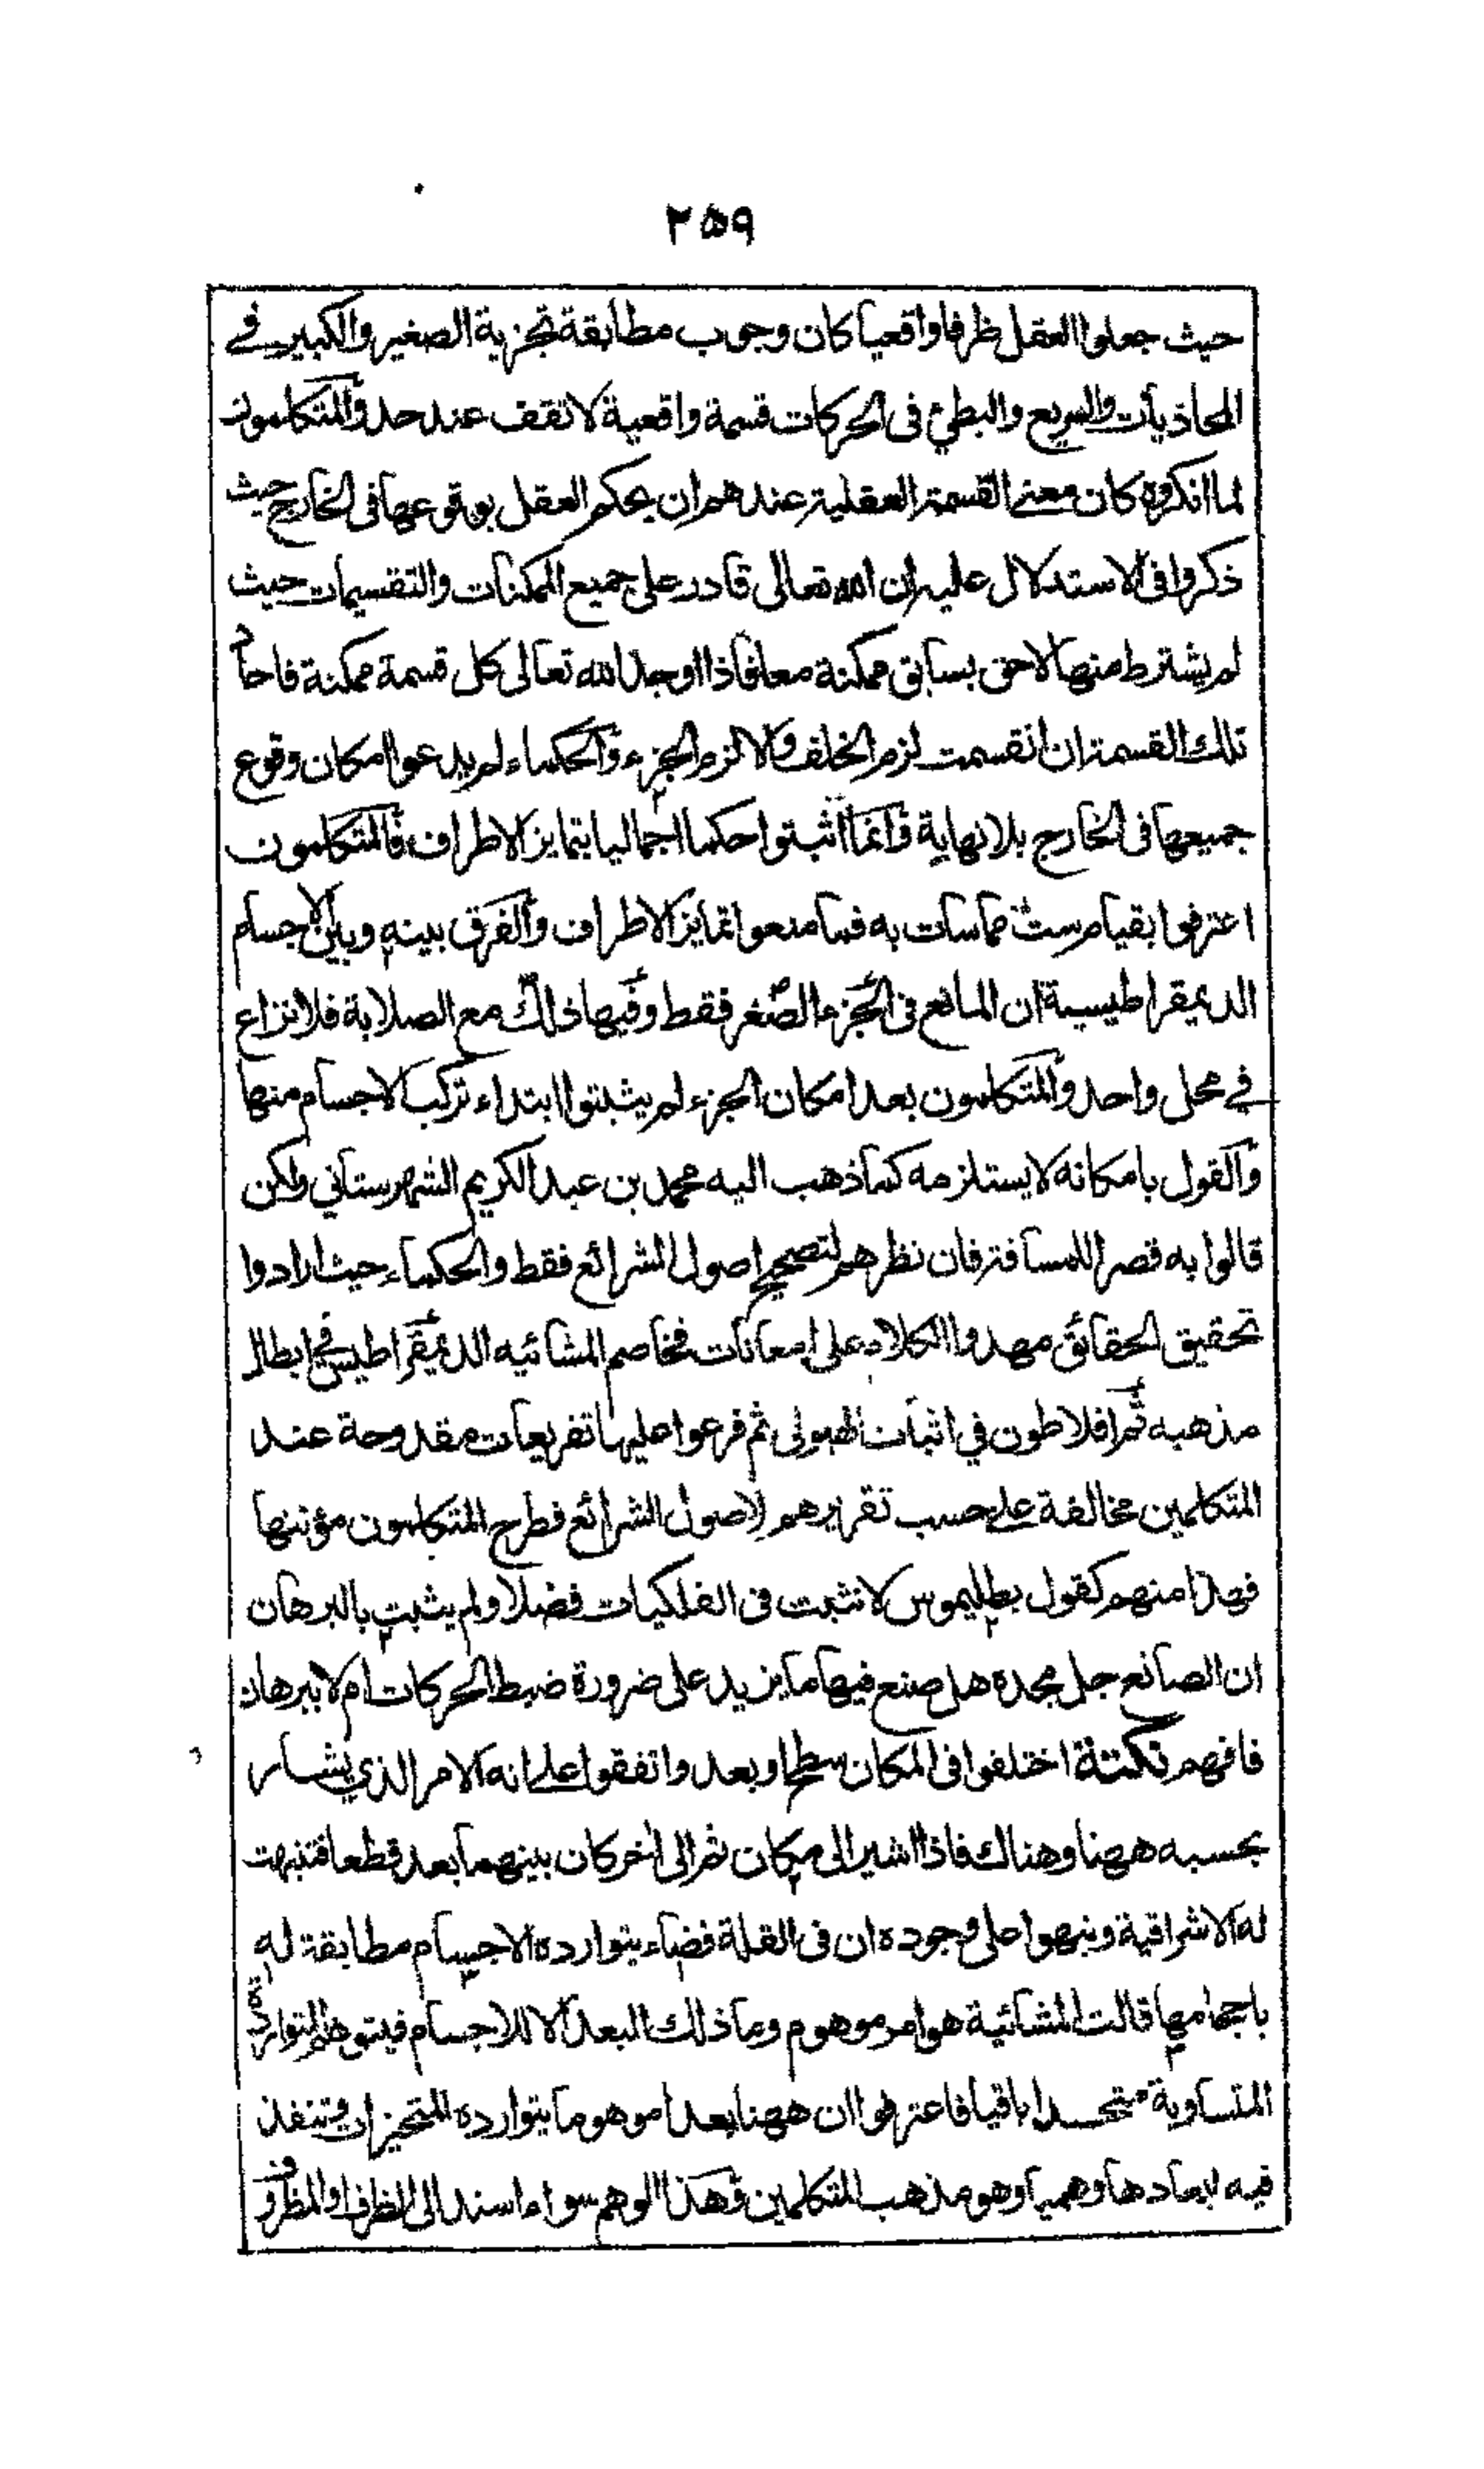 ۲۵۹
حيث جعلوا العقل ظرفا واقعيا كان وجوب مطابقة تجزية الصغير والكبير في
المحاذيات والسريع والبطئ فى الحركات قسمة واقعية لا تقف عند حد والمتكلمون
لما انكروه كان معنى القسمة العقلية عندهم ان يحكم العقل بوقوعها فى الخارج حيث
ذكروا فى الاستدلال عليه ان الله تعالى قادر على جميع الممكنات والتقسيمات حيث
لم يشترط منها لاحق بسابق ممكنة معا فاذا اوجد الله تعالى كل قسمة ممكنة فاحاد
تلك القسمة ان انقسمت لزم الخلف والا لزم الجزء والحكماء لم يدعوا امكان وقوع
جميعها فى الخارج بلا نهاية وانما اثبتوا حكما اجماليا بتمايز الاطراف فالمتكلمون
اعترفوا بقيام ست مماسات به فما منعوا تمايز الاطراف والفرق بينه وبين الاجسام
الديمقراطيسية ان المانع فى الجزء الصغر فقط وفيها ذلك مع الصلابة فلا نزاع
في محل واحد والمتكلمون بعد امكان الجزء لم يثبتوا ابتداء تركب الاجسام منها
والقول بامكانه لا يستلزمه كما ذهب اليه محمد بن عبد الكريم الشهرستاني ولكن
قالوا به قصرا للمسافة فان نظرهم لتصحيح اصول الشرائع فقط والحكماء حيث ارادوا
تحقيق الحقائق مهدوا الكلام على امعانات فخاصم المشائيه الديمقراطيس في ابطال
مذهبه ثم افلاطون في اثبات الهيولى ثم فرعوا عليها تفريعات مقدوحة عند
المتكلمين مخالفة على حسب تقريرهم لاصول الشرائع فطرح المتكلمون مؤنتها
فهذا منهم كقول بطليموس لا نثبت فى الفلكيات فضلا ولم يثبت بالبرهان
ان الصانع جل مجده هل صنع فيها ما يزيد على ضرورة ضبط الحركات ام لا ببرهان
فافهم نكتة اختلفوا فى المكان سطح او بعد واتفقوا على انه الامر الذي يشار
بحسبه ههنا وهناك فاذا اشير الى مكان ثم الى اخر كان بينهما بعد قطعا فتنبهت
له الاشراقية ونبهوا على وجوده ان فى القلة فضاء يتوارده الاجسام مطابقة له
باحجامها قالت المشائية هو امر موهوم وما ذلك البعد الا للاجسام فيتوهم المتواردة
المتساوية متحدا باقيا فاعترفوا ان ههنا بعدا موهوما يتوارده المتحيزات وتنفذ
فيه ابعادها وهميا وهو مذهب المتكلمين وهذا الوهم سواء اسند الى الظرف او المظروف